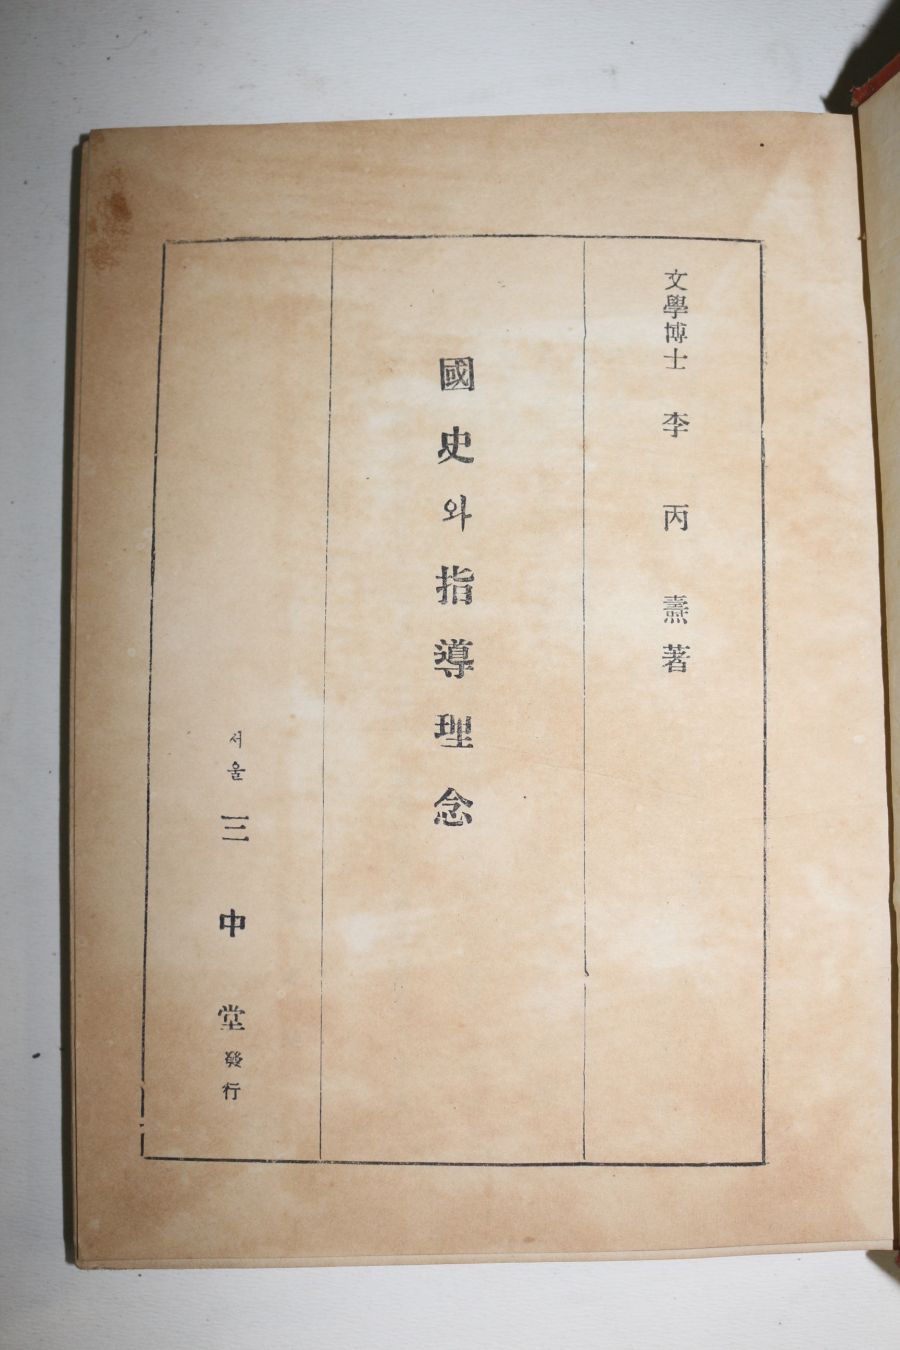 文學博士 李丙燾 著
國史와 指導理念
서울 三中堂 發行